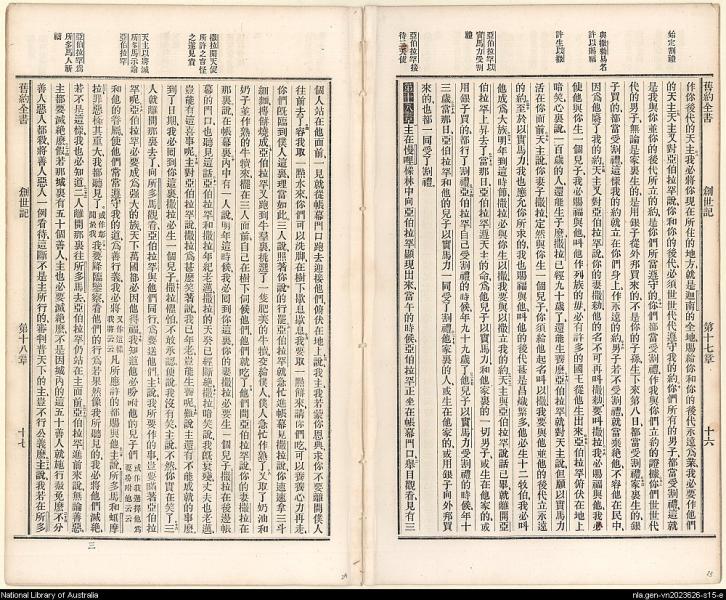 始定割禮
與撒勒易名
許以賜福
許生以撒
亞伯拉罕以
實馬力受割
禮
亞伯拉罕接
待三天使
創世記
第十七章
十六
作你後代的天主我必將你現在所住的地方就是迦南的全地賜給你和你的後代永遠為業我必要作他們
的天主天主又對亞伯拉罕說你和你的後代必須世世代代遵守我的約你們所有的男子都當受割禮這就
是我與你並你的後代所立的約是你們所當遵守的你們都當受割禮作我與你們立約的證據你們世世代
代的男子無論是家裏生的是用銀子從外邦買來的不是你的子孫生下來第八日都當受割禮家裏生的銀
子買的都當受割禮這樣我的約就立在你們身上作永遠的約男子若不受割禮就當棄絕他不容他在民中
因為他廢了我的約天主又對亞伯拉罕說你的妻撒勒他的名不可再叫撒勒要叫撒拉我必賜福與他我必
使他與你生一個兒子我必賜福與他叫他作列族的母必有許多的國王從他生出來亞伯拉罕俯伏在地上
暗笑心裏說一百歲的人還能生子麼撒拉已經九十歲了還能生養麼亞伯拉罕就對天主說但願以實馬力
活在你面前天主說你妻子撒拉定然與你生一個兒子你須給他起名叫以撒我要與他並他的後代立永遠
的約至於以實馬力我也應允你所求的我也賜福與他叫他的後代甚是昌熾繁多他必生十二牧伯我必叫
他成為大族明年到這時節撒拉必與你生以撒我要與以撒立我的約天主與亞伯拉罕說話已畢就離開亞
伯拉罕上昇去了當那日亞伯拉罕遵天主的命就為他兒子以實馬力和他家裏的一切男子或生在他家的或
用銀子買的都行了割禮亞伯拉罕自己受割禮的時候年九十九歲了他兒子以實馬力受割禮的時候年十
三歲當那日亞伯拉罕和他的兒子以實馬力一同受了割禮他家裏的人或生在他家的或用銀子向外邦買
來的也都一同受了割禮
第十八章主在慢哩橡林中向亞伯拉罕顯現出來當午的時候亞伯拉罕正坐在帳幕門口舉目觀看見有三
撒拉聞天使
所許之言怪
之遂見責
天主以將滅
所多馬示諭
亞伯拉罕
亞伯拉罕為
所多馬人祈
禱
個人站在他面前一見就從帳幕門口跑去迎接他們俯伏在地上說我主我若蒙你恩典求你不要離開僕人
往前去了容我取一點水來你們可以洗腳在樹下歇息歇息我要取一點餅來請你們喫可以養養心力再走
你們既臨到僕人這裏理當如此三人說照著你說的行罷亞伯拉罕就急忙進帳幕見撒拉說你速速拿三斗
細麵摶餅燒成亞伯拉罕又跑到牛羣裏挑選了一隻肥嫩的牛犢交給僕人僕人急忙作熟了又取了奶油和
奶子並作熟的牛犢來擺在三人面前自己在樹下伺候他們他們就喫了他們問亞伯拉罕說你的妻撒拉在
那裏說在帳幕裏內中有一人說明年這時候我必囘到你這裏你的妻撒拉要生一個兒子撒拉在後邊帳
幕的門口也聽見這話亞伯拉罕和撒拉年紀老邁撒拉的天癸已經斷絕撒拉暗笑說我既衰殘丈夫也老邁
豈能有這喜事呢主對亞伯拉罕說撒拉為甚麼笑著說我已年老豈能生養呢難道主還有不能成就的事麼
到了日期我必囘到你這裏撒拉必生一個兒子撒拉懼怕不敢承認便說我沒有笑主說不然你實在笑了三
人就離開那裏去了向所多馬觀看亞伯拉罕與他們同行為要送他們主說我所要作的事豈可瞞著亞伯拉
罕呢亞伯拉罕必要成為強大的族天下萬國都必因他得福我知道他必吩咐他的子孫
和他的眷屬使他們常常遵守我的道為善行義我必將所應許他的都賜與他主說所多馬和蛾摩
拉罪惡極其重大我都聽見了我要降臨鑒察看他們的行為若果然像我所聽見的我必將他們滅絕
若不是這樣我也必知道二人離開那裏往所多馬去亞伯拉罕仍站在主面前亞伯拉罕進前來說無論善惡
主都要滅絕麼假若那城裏有五十個善人主也必要滅絕麼不是因城內的這五十善人就施行寬免麼不分
善人惡人都殺將善人惡人一個看待這斷不是主所行的審判普天下的主豈不行公義麼主說我若在所多
舊約全書
創世記
第十八章
十七
三
National Library of Australia
nla.gen-vn2023626-s15-e